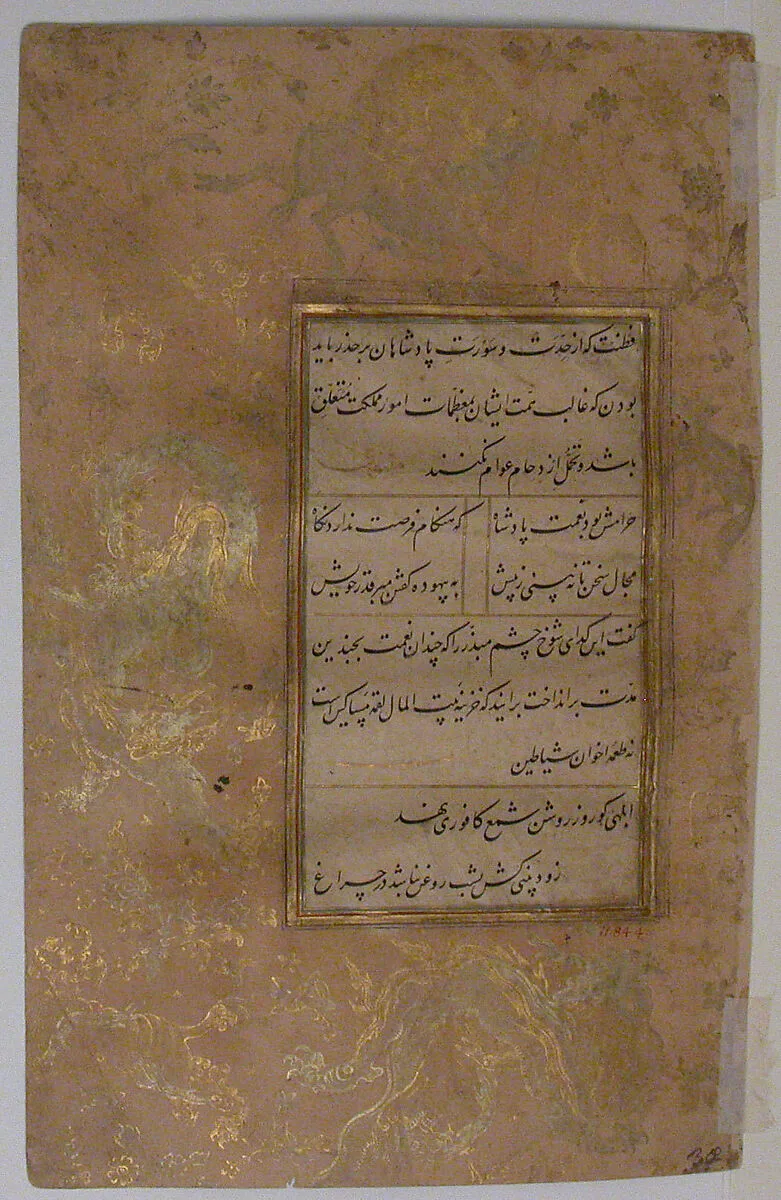 فطنت که از حدّت و سَوْرتِ پادشاهان برحذر باید
بودن که غالب همت ایشان بمعظمات امور مملکت متعلّق
باشد و تحمّل ازدحام عوام نکنند
حرامش بود نعمت پادشاه که هنکام فرصت ندارد نکاه
مجال سخن تا نه بینی ز پیش به بیهوده کفتن مبر قدر خویش
کفت این کدای شوخ چشم مبذّر را که چندان نعمت بچندین
مدّت برانداخت برانید که خزینه بیت المال لقمه مساکین است
نه طعمه اخوان شیاطین
ابلهی کو روز روشن شمع کافوری نهد
زود بینی کش بشب روغن نباشد در چراغ
11.84.4
302